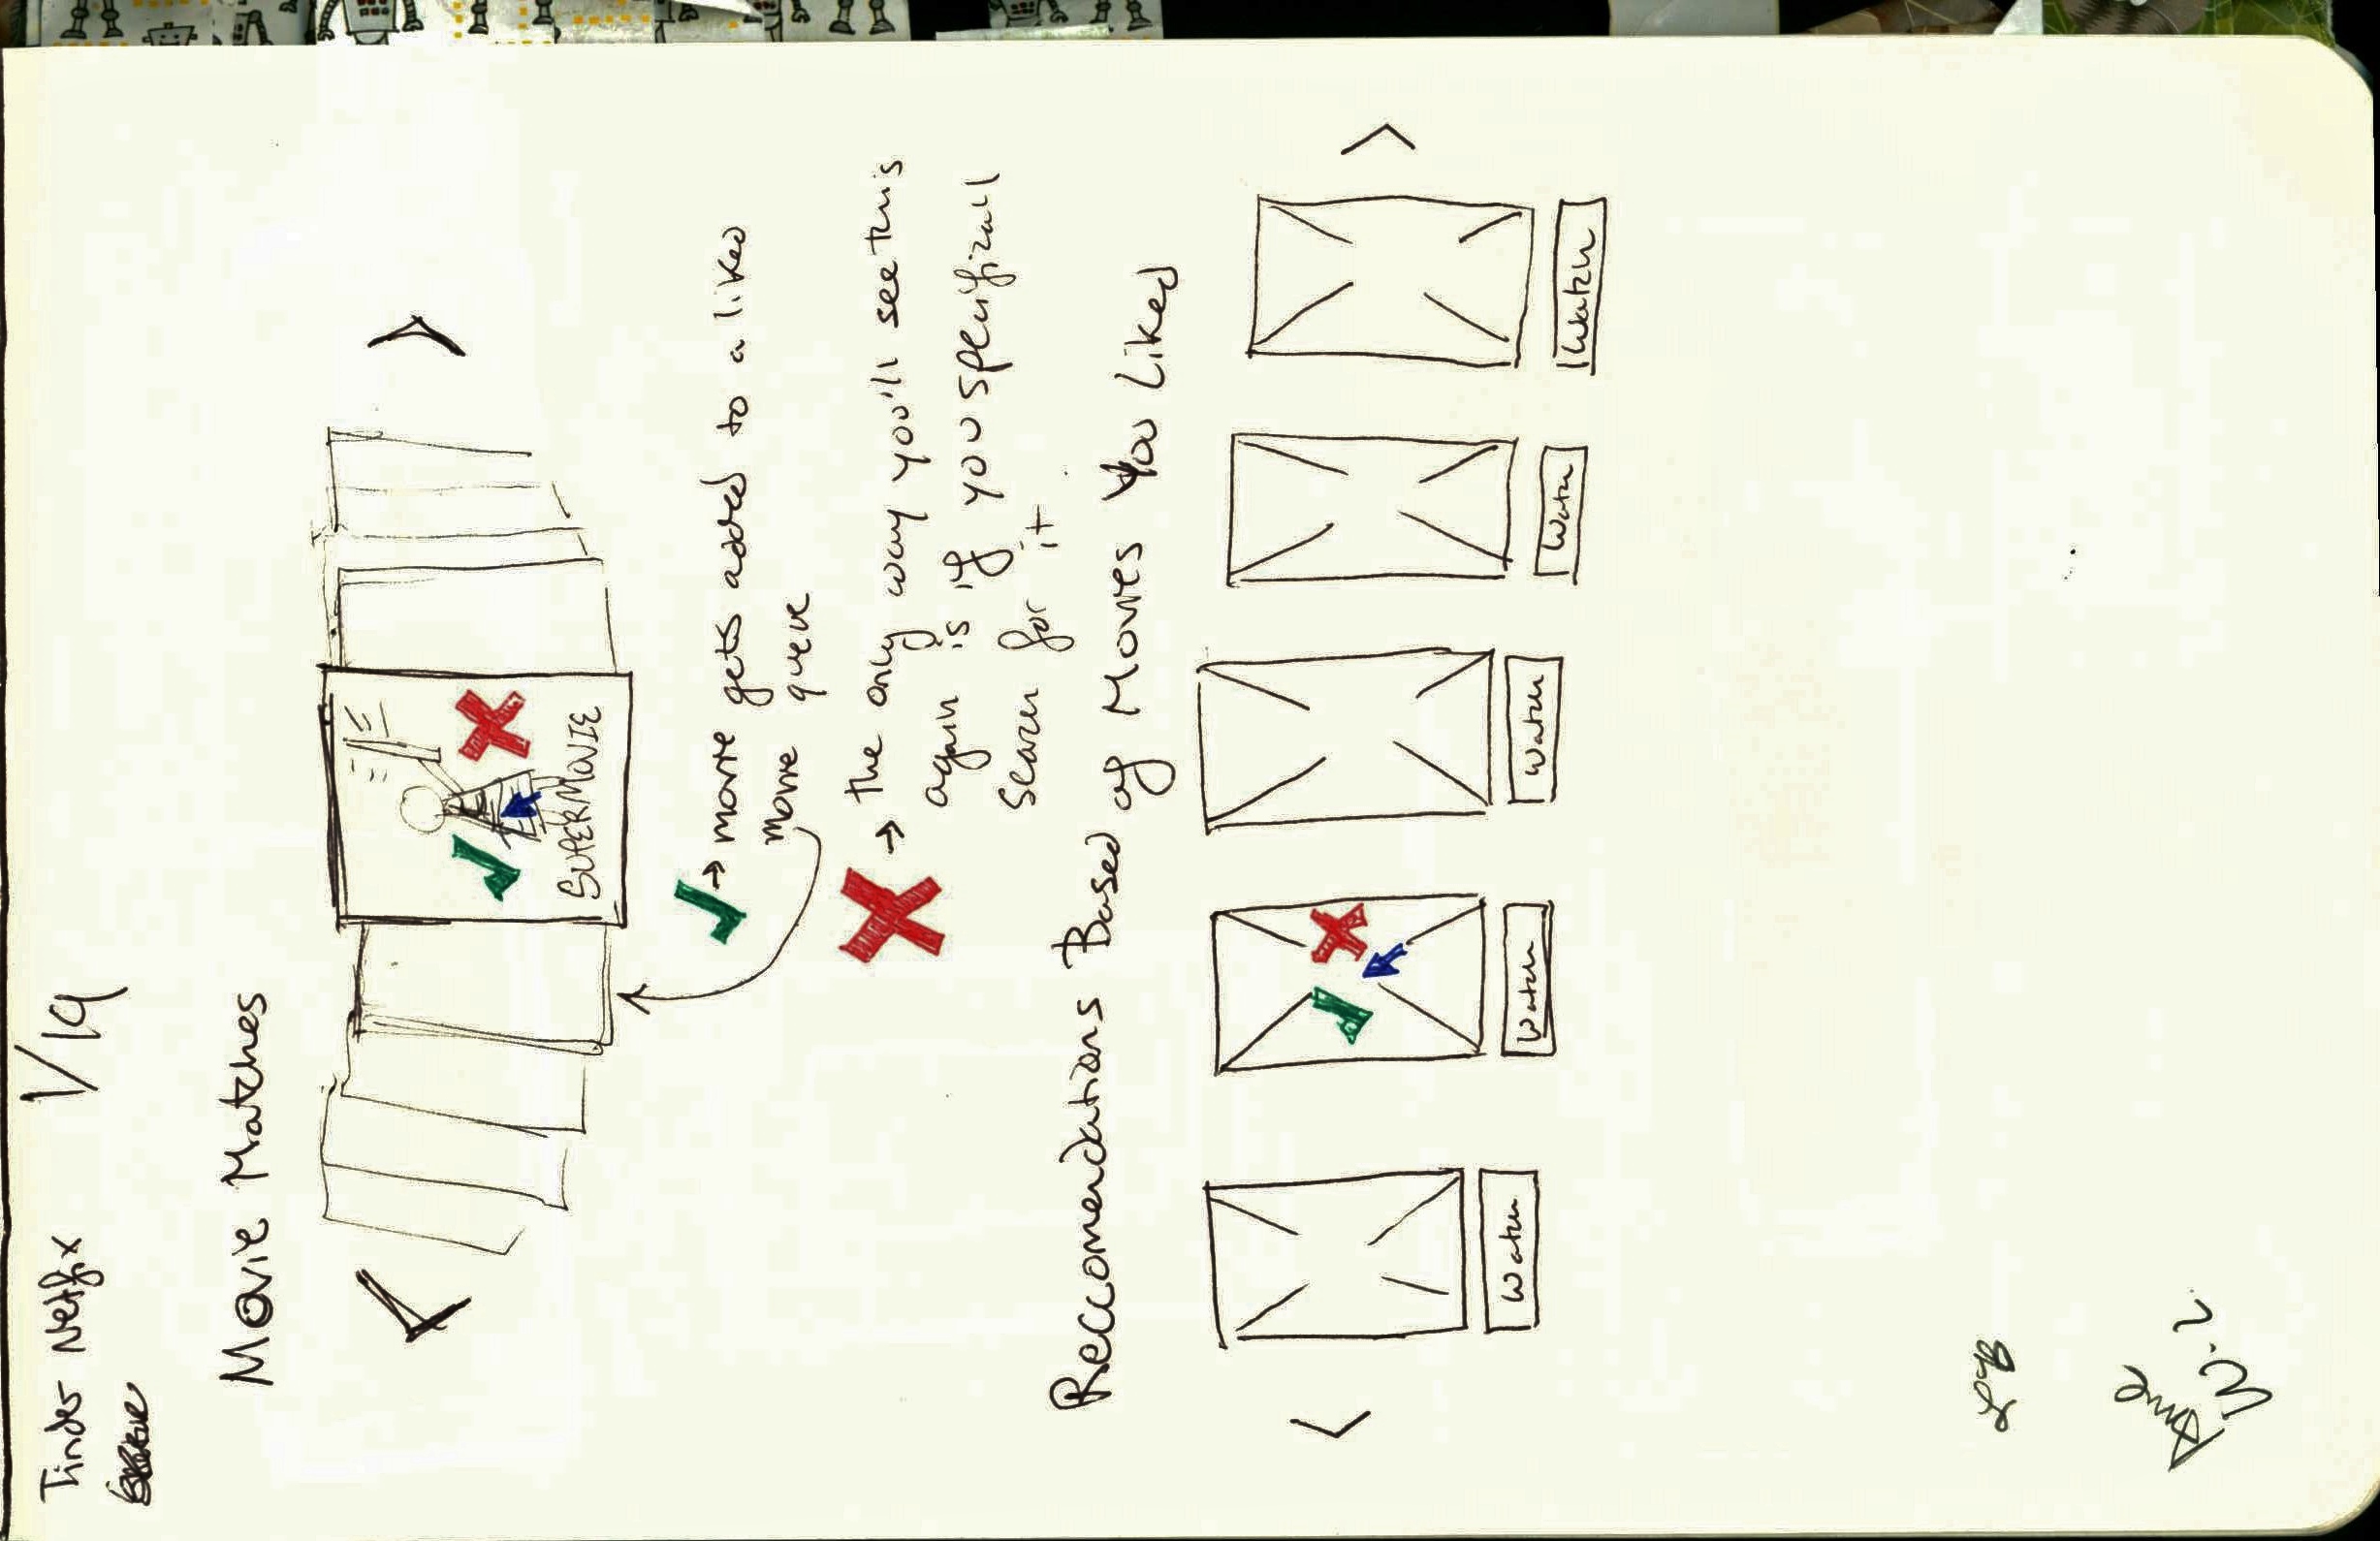 Tinder Netflix 1/19
Movie Matches
SUPERMOVIE
→ movie gets added to a liked
movie queue
→ the only way you'll see this
again is if you specifizall
searcu for it
Reccomendations Based of Movies You Liked
Watch
Watch
Watch
Watch
Watch